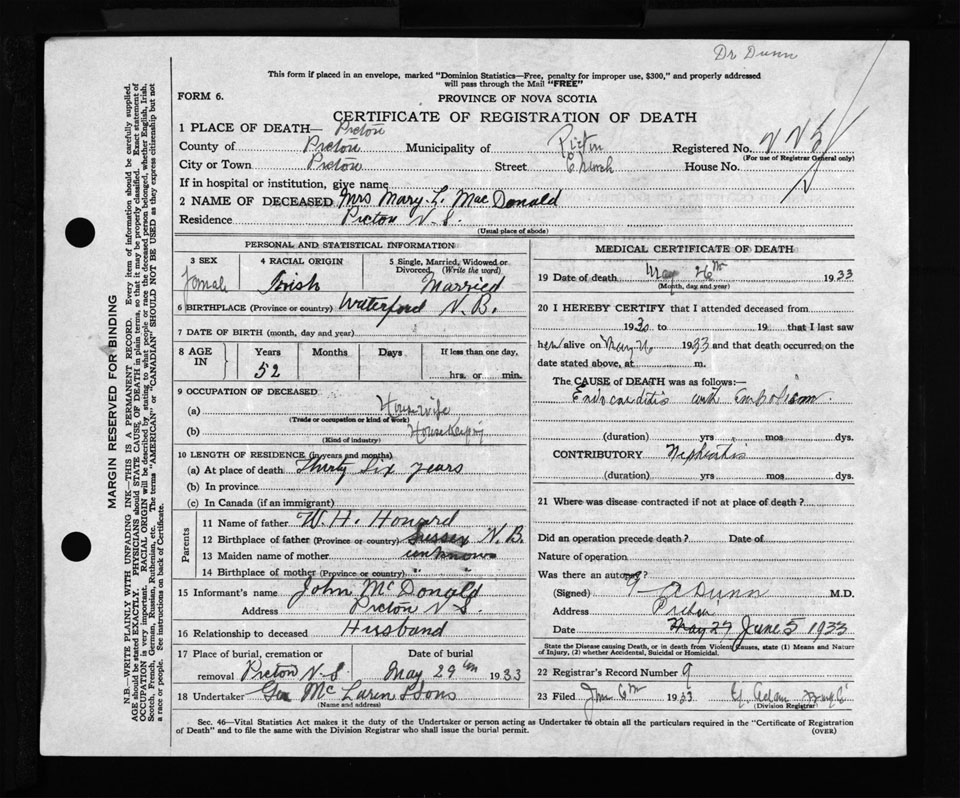 Dr Dunn
This form if placed in an envelope, marked "Dominion Statistics—Free, penalty for improper use, $300," and properly addressed
will pass through the Mail "FREE"
FORM 6.
PROVINCE OF NOVA SCOTIA
CERTIFICATE OF REGISTRATION OF DEATH
1 PLACE OF DEATH— Pictou
County of Pictou Municipality of Pictou Registered No.
(For use of Registrar General only)
City or Town Pictou Street Church House No.
If in hospital or institution, give name
2 NAME OF DECEASED Mrs Mary L. MacDonald
Residence Pictou N.S.
(Usual place of abode)
PERSONAL AND STATISTICAL INFORMATION
3 SEX
Female
4 RACIAL ORIGIN
Irish
5 Single, Married, Widowed or Divorced, (Write the word)
Married
6 BIRTHPLACE (Province or country) Waterford N.B.
7 DATE OF BIRTH (month, day and year)
8 AGE IN Years Months Days If less than one day,
52 hrs. or min.
9 OCCUPATION OF DECEASED
(a) Housewife
(Trade or occupation or kind of work)
(b) House Keeping
(Kind of industry)
10 LENGTH OF RESIDENCE (in years and months)
(a) At place of death Thirty Six years
(b) In province
(c) In Canada (if an immigrant)
Parents
11 Name of father W. H.
12 Birthplace of father (Province or country) Sussex N.B.
13 Maiden name of mother unknown
14 Birthplace of mother (Province or country) " "
15 Informant's name John McDonald
Address Pictou N.S.
16 Relationship to deceased Husband
17 Place of burial, cremation or removal Pictou N.S. Date of burial May 29th 1933
18 Undertaker Geo McLaren & Sons
(Name and address)
MEDICAL CERTIFICATE OF DEATH
19 Date of death May 26th 1933
(Month, day and year)
20 I HEREBY CERTIFY that I attended deceased from
1930 to 19 that I last saw
her alive on May 1933 and that death occurred on the
date stated above, at m.
The CAUSE of DEATH was as follows:—
Endocarditis with embolism
(duration) yrs. mos. dys.
CONTRIBUTORY Nephritis
(duration) yrs. mos. dys.
21 Where was disease contracted if not at place of death?
Did an operation precede death? Date of
Nature of operation
Was there an autopsy?
(Signed) Dunn M.D.
Address Pictou
Date May 27 June 5 1933
State the Disease causing Death, or in death from Violent Causes, state (1) Means and Nature
of Injury, (2) whether Accidental, Suicidal or Homicidal.
22 Registrar's Record Number 9
23 Filed 1933
(Division Registrar)
Sec. 46—Vital Statistics Act makes it the duty of the Undertaker or person acting as Undertaker to obtain all the particulars required in the "Certificate of Registration
of Death" and to file the same with the Division Registrar who shall issue the burial permit. (OVER)
MARGIN RESERVED FOR BINDING
N.B.—WRITE PLAINLY WITH UNFADING INK—THIS IS A PERMANENT RECORD. Every item of information should be carefully supplied.
AGE should be stated EXACTLY. PHYSICIANS should STATE CAUSE OF DEATH in plain terms, so that it may be properly classified. Exact statement of
OCCUPATION is very important. RACIAL ORIGIN will be described by stating to what people or race the deceased person belonged, whether English, Irish,
Scotch, French, German, Russian, Ruthenian, etc. The terms "AMERICAN" or "CANADIAN" SHOULD NOT BE USED as they express citizenship but not
a race or people. See instructions on back of Certificate.